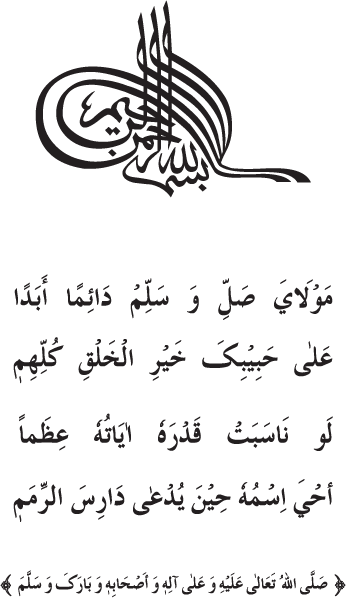 بسم الله الرحمن الرحيم
مَوْلَايَ صَلِّ وَ سَلِّمْ دَائِمًا أَبَدًا
عَلٰى حَبِيْبِكَ خَيْرِ الْخَلْقِ كُلِّهِمٖ
لَو نَاسَبَتْ قَدْرَهٗ اٰيَاتُهٗ عِظَماً
أحْيَ اِسْمُهٗ حِيْنَ يُدْعٰى دَارِسَ الرِّمَمٖ
﴿ صَلَّى اللهُ تَعَالٰى عَلَيْهِ وَ عَلٰى آلِهٖ وَ أَصْحَابِهٖ وَ بَارَكَ وَ سَلَّمَ ﴾